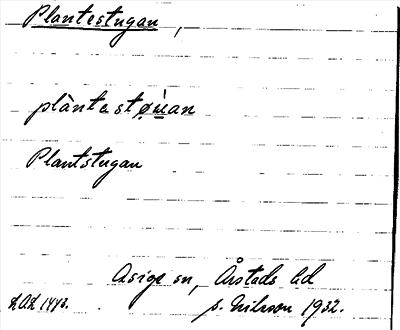 Plantestugan,
plàntestøu̇an
Plantstugan
Asige sn, Årstads hd
LAL 1443. S. Nilsson 1932.